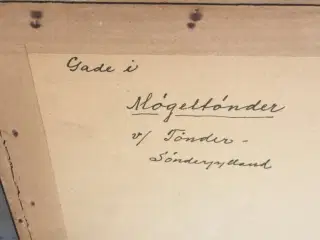 Gade i
Møgeltønder
v/ Tønder -
Sønderjylland